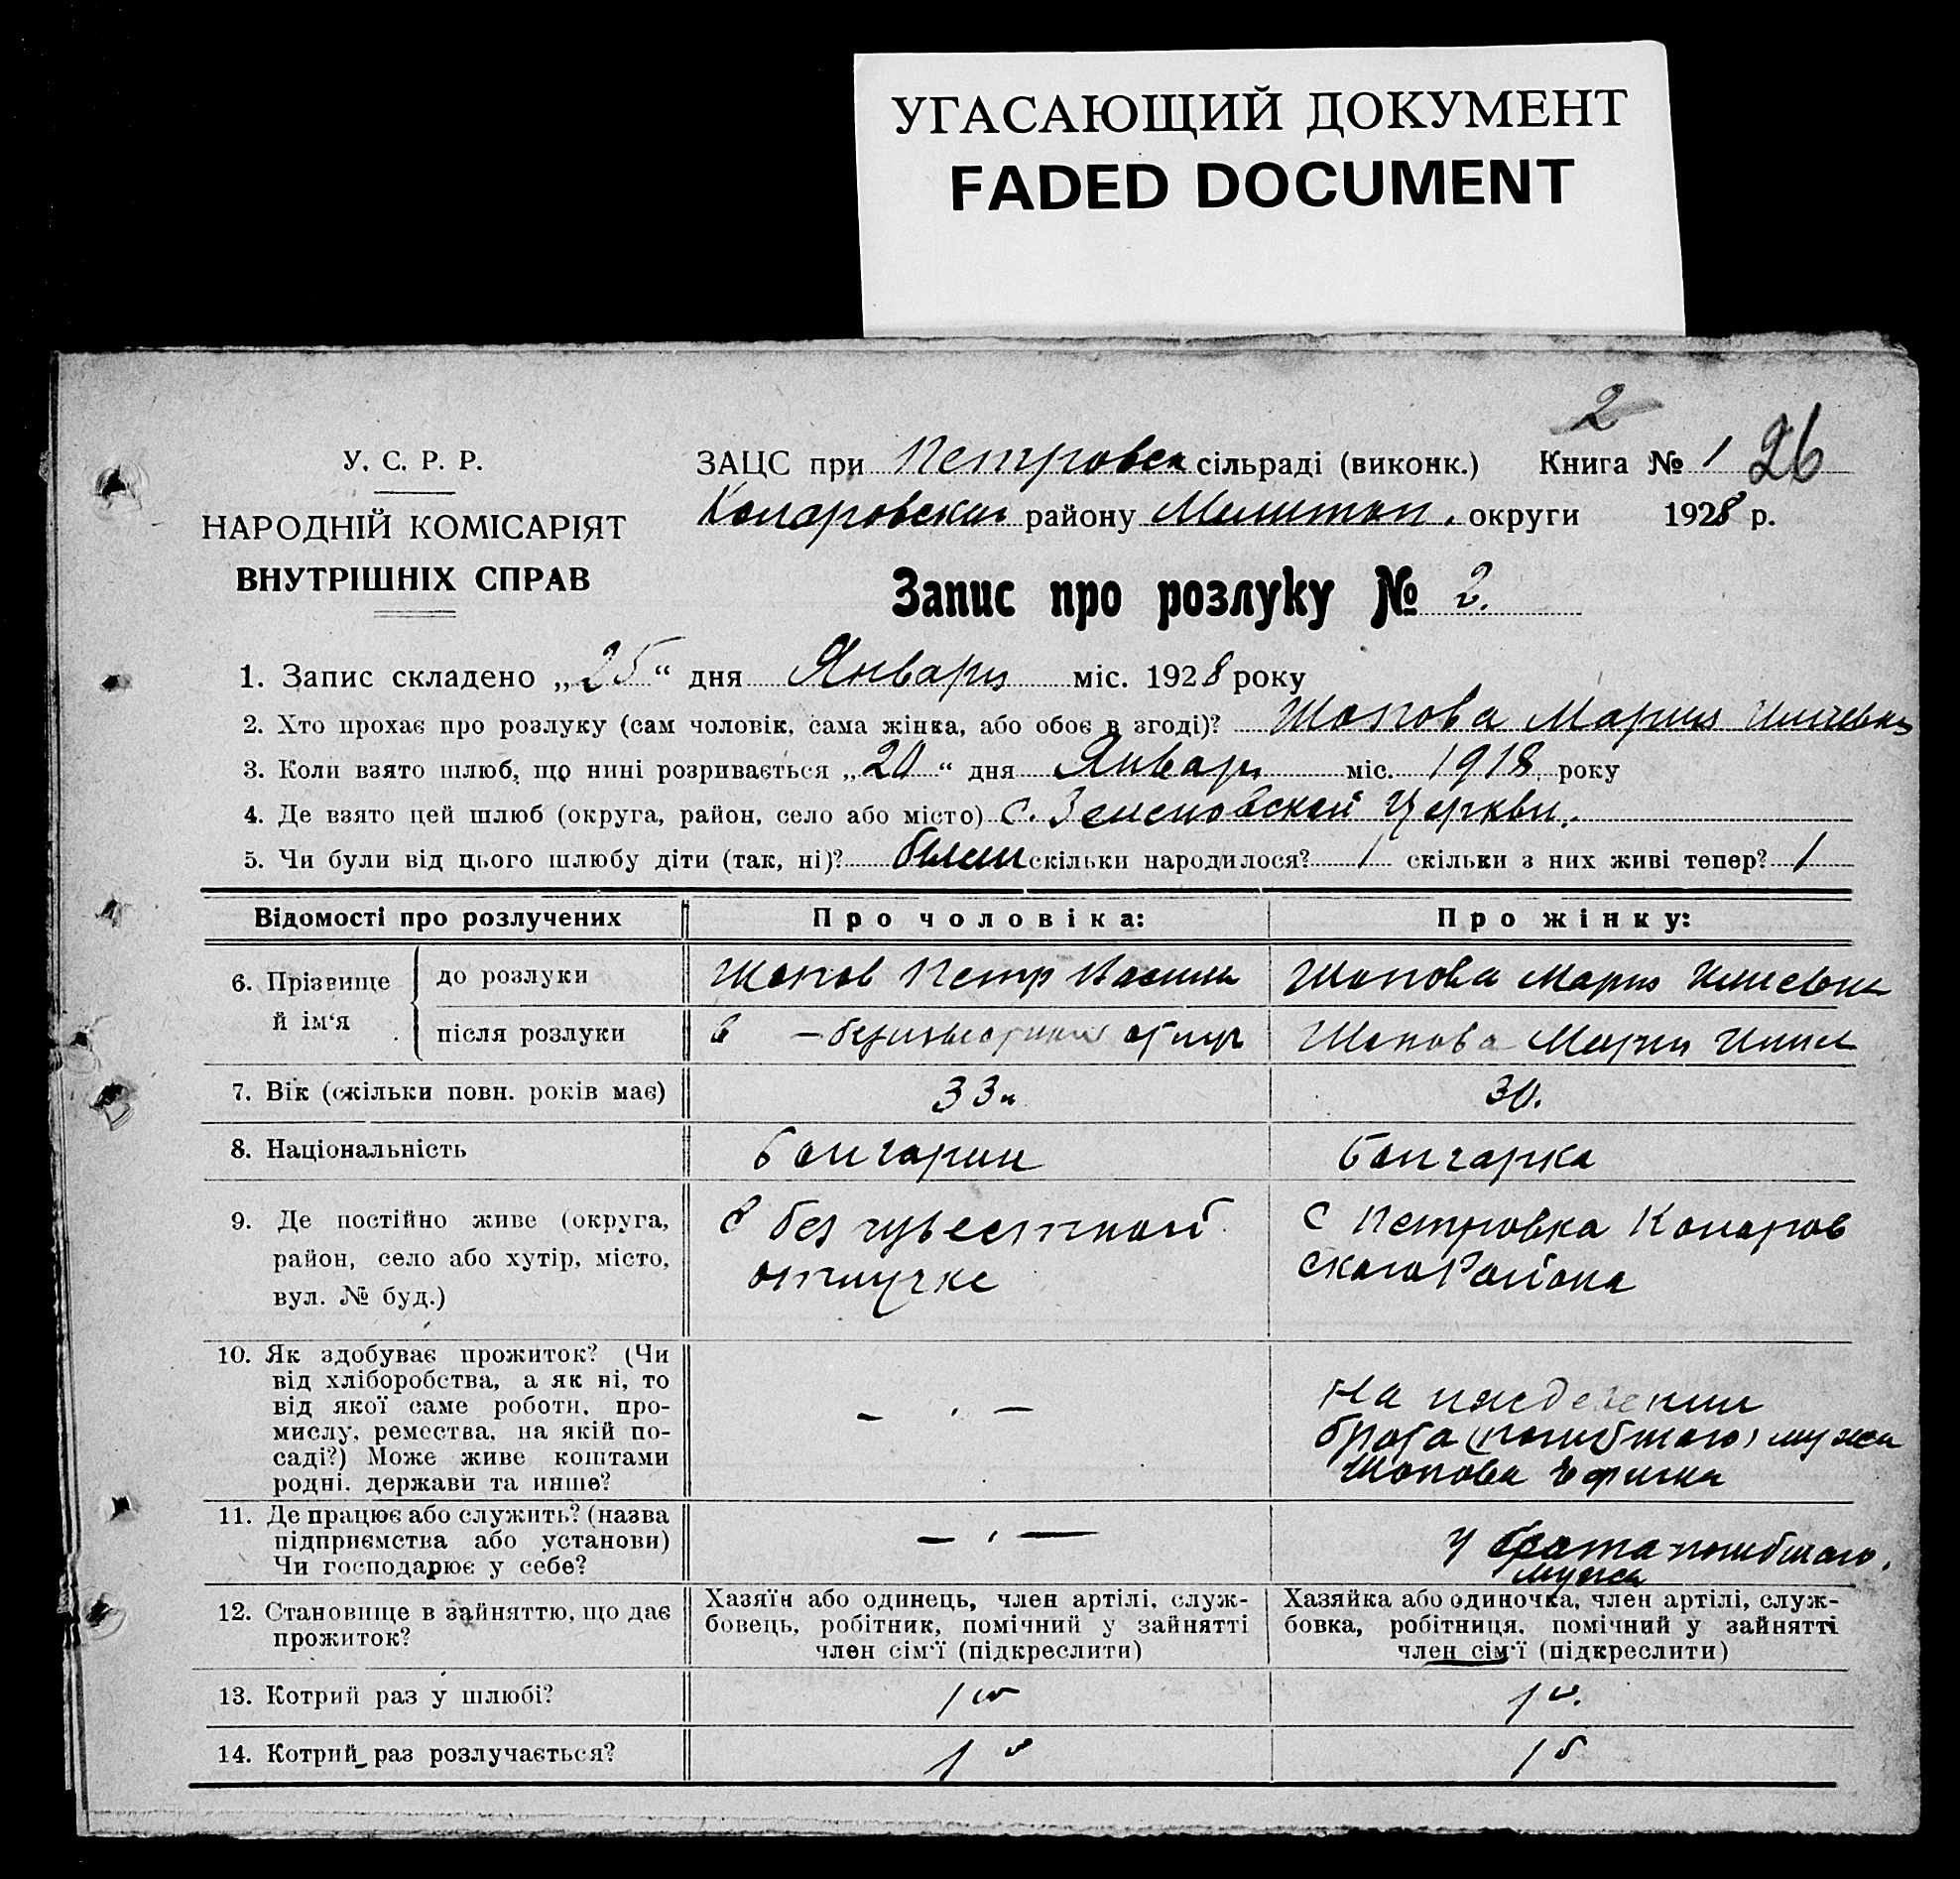 УГАСАЮЩИЙ ДОКУМЕНТ
FADED DOCUMENT
2
У. С. Р. Р.
НАРОДНІЙ КОМІСАРІЯТ
ВНУТРІШНІХ СПРАВ
ЗАЦС при Петровск сільраді (виконк.) Книга № 1 26
району округи 1928 р.
Запис про розлуку № 2.
1. Запис складено „25“ дня Января міс. 1928 року
2. Хто прохає про розлуку (сам чоловік, сама жінка, або обоє в згоді)? Шопова Мария
3. Коли взято шлюб, що нині розривається „20“ дня Января міс. 1918 року
4. Де взято цей шлюб (округа, район, село або місто) с. Церкви.
5. Чи були від цього шлюбу діти (так, ні)? были скільки народилося? 1 скільки з них живі тепер? 1
Відомості про розлучених
Про чоловіка:
Про жінку:
6. Прізвище й ім‘я
до розлуки
Шопов Петр Васили
Шопова Мария
після розлуки
в —
Шопова Мария
7. Вік (скільки повн. років має)
33
30.
8. Національність
болгарин
болгарка
9. Де постійно живе (округа,
район, село або хутір, місто,
вул. № буд.)
в безизвестной
отлучке
с Петровка Коларов
ского Района
10. Як здобуває прожиток? (Чи
від хліборобства, а як ні, то
від якої саме роботи, про-
мислу, ремества, на якій по-
саді?) Може живе коштами
родні, держави та инше?
— . —
На иждевении
брата (погибшого) мужа
Шопова Ефима
11. Де працює або служить? (назва
підприємства або установи)
Чи господарює у себе?
— . —
У брата погибшого
мужа
12. Становище в зайняттю, що дає
прожиток?
Хазяїн або одинець, член артілі, служ-
бовець, робітник, помічний у зайнятті
член сім‘ї (підкреслити)
Хазяйка або одиночка, член артілі, служ-
бовка, робітниця, помічний у зайнятті
член сім‘ї (підкреслити)
13. Котрий раз у шлюбі?
1й
1й.
14. Котрий раз розлучається?
1й
1й